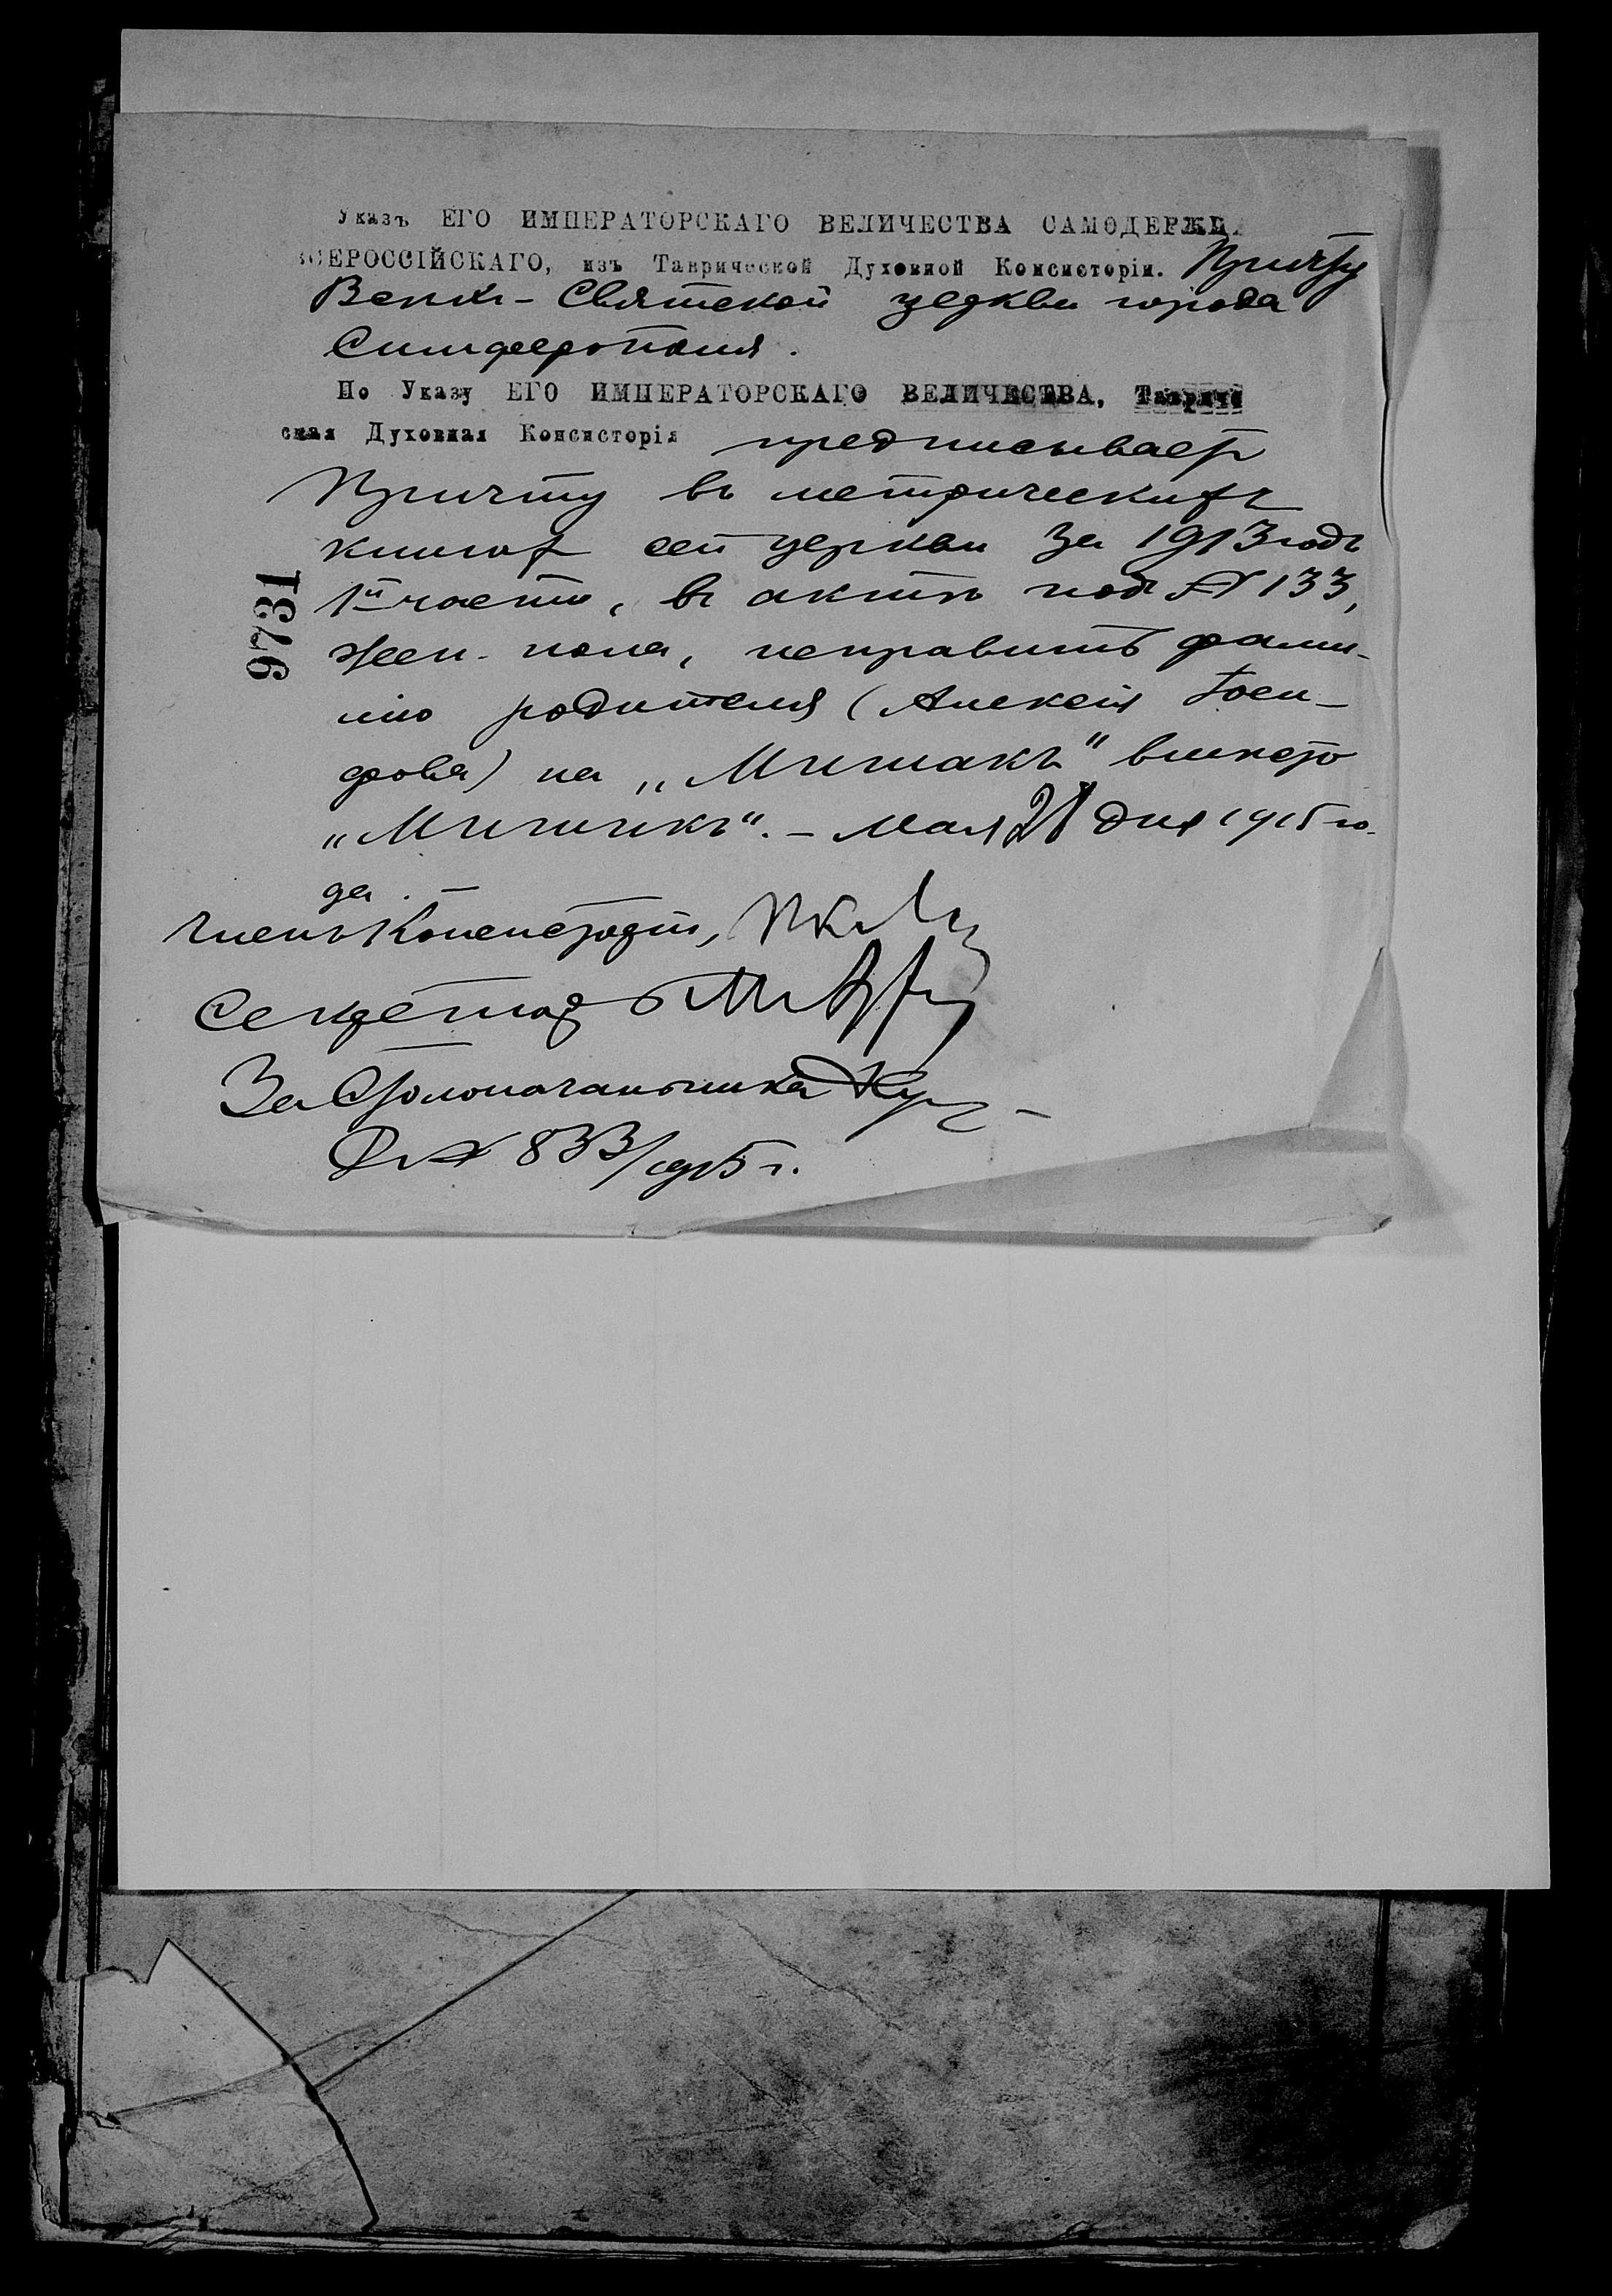 Указъ ЕГО ИМПЕРАТОРСКАГО ВЕЛИЧЕСТВА САМОДЕРЖЦ
ВСЕРОССІЙСКАГО, изъ Таврической Духовной Консисторіи. Причту
Всѣхъ-Святской церкви города
Симферополя.
По Указу ЕГО ИМПЕРАТОРСКАГО ВЕЛИЧЕСТВА, Тавриче
ская Духовная Консисторія предписываетъ
Причту въ метрическихъ
книгах сей церкви за 1913 годъ
1й части, въ актѣ подъ № 133,
жен. пола, исправить фами-
лію родителя (Алексія
) на „Мишакъ" вмѣсто
„Мишикъ". – Мая 21 дня 1915 го-
да. –
Членъ Консисторіи,
Секретарь
За Столоначальника
Д № 833/1915 г.
9731